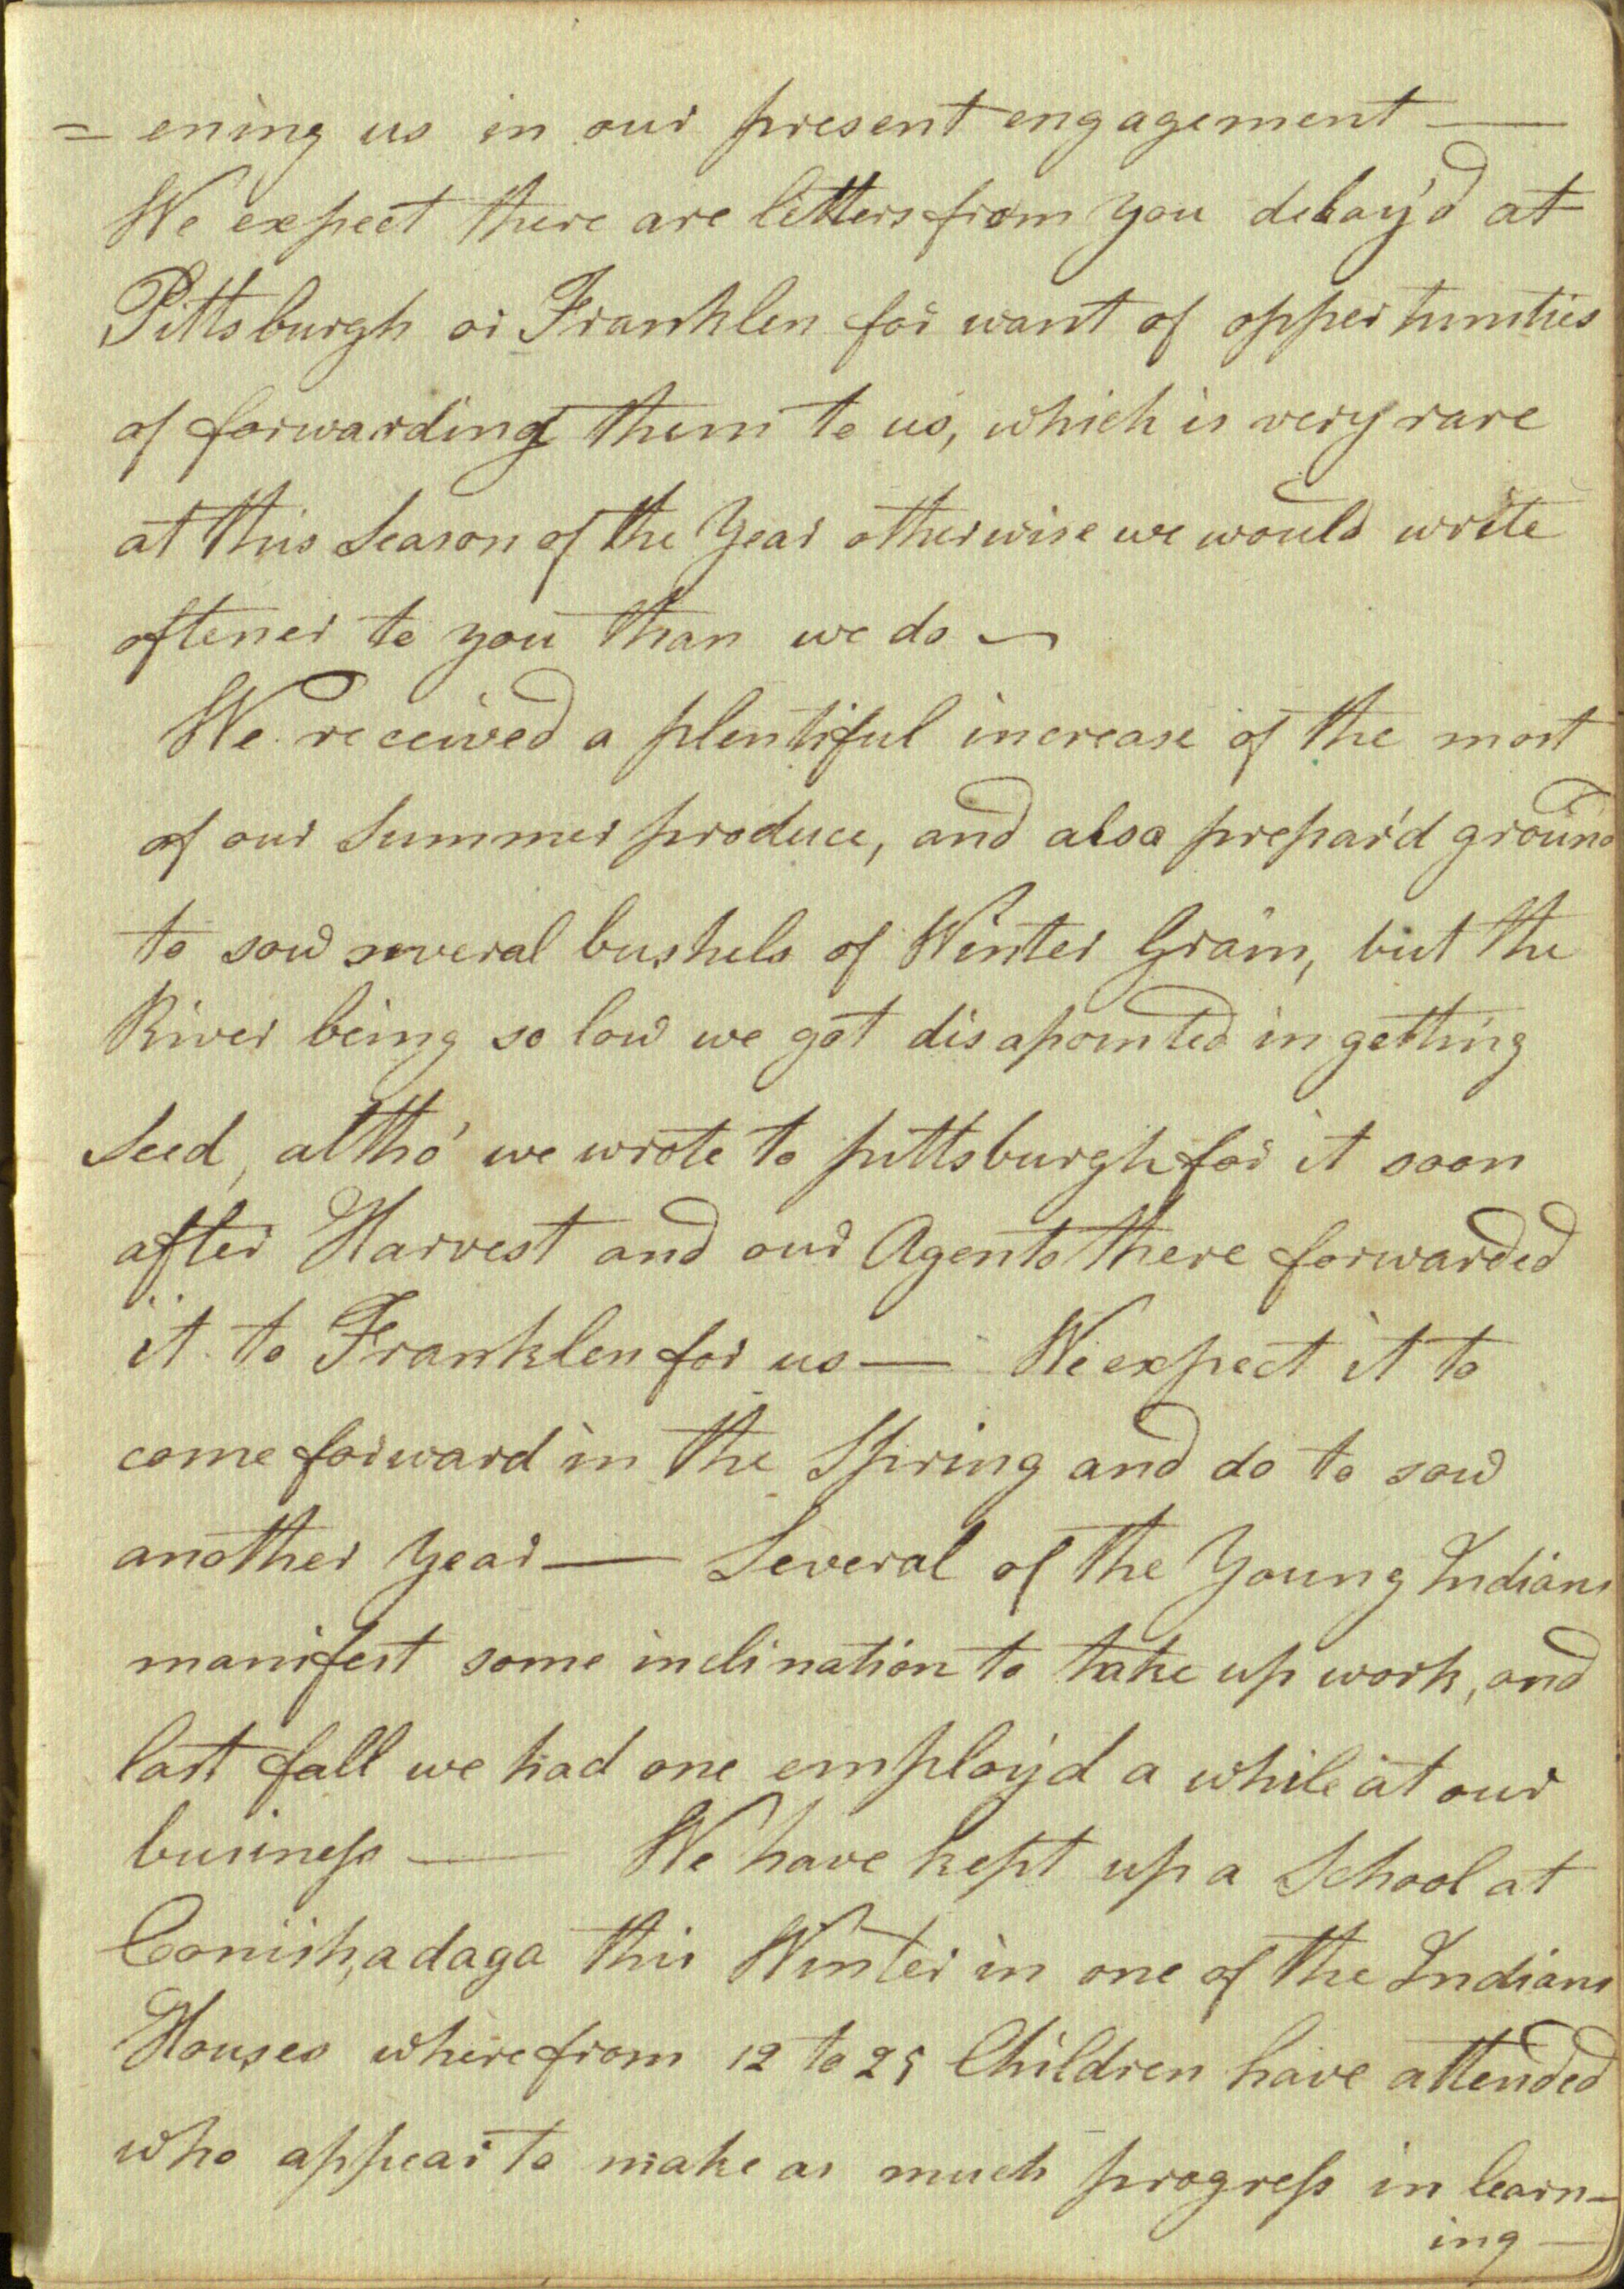 = ening us in our present engagement —
We expect there are letters from you delay'd at
Pittsburgh or Franklen for want of oppertunities
of forwarding them to us, which is very rare
at this Season of the Year otherwise we would write
oftener to you than we do ~
We received a plentiful increase of the most
of our Summer produce, and also prepar'd ground
to sow several bushels of Winter Grain, but the
River being so low we got disapointed in getting
Seed, altho' we wrote to pittsburgh for it soon
after Harvest and our Agents there forwarded
it to Franklen for us — We expect it to
come forward in the Spring and do to sow
another Year — Several of the Young Indians
manifest some inclination to take up work, and
last fall we had one employ'd a while at our
business — We have kept up a School at
Conishadaga this Winter in one of the Indians
Houses where from 12 to 25 Children have attended
who appear to make as much progress in learn-
ing —